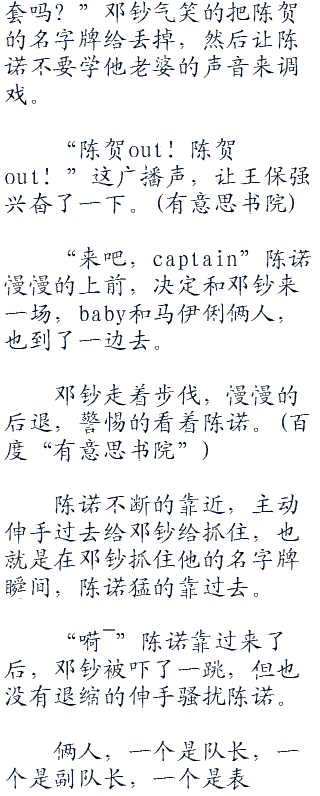 套吗？”邓钞气笑的把陈贺
的名字牌给丢掉，然后让陈
诺不要学他老婆的声音来调
戏。
“陈贺out！陈贺
out！”这广播声，让王保强
兴奋了一下。(有意思书院)
“来吧，captain”陈诺
漫漫的上前，决定和邓钞来
一场，baby和马伊俐俩人，
也到了一边去。
邓钞走着步伐，漫漫的
后退，警惕的看着陈诺。(百
度“有意思书院”)
陈诺不断的靠近，主动
伸手过去给邓钞给抓住，也
就是在邓钞抓住他的名字牌
瞬间，陈诺猛的靠过去。
“嗬‾”陈诺靠过来了
后，邓钞被吓了一跳，但也
没有退缩的伸手骚扰陈诺。
俩人，一个是队长，一
个是副队长，一个是表